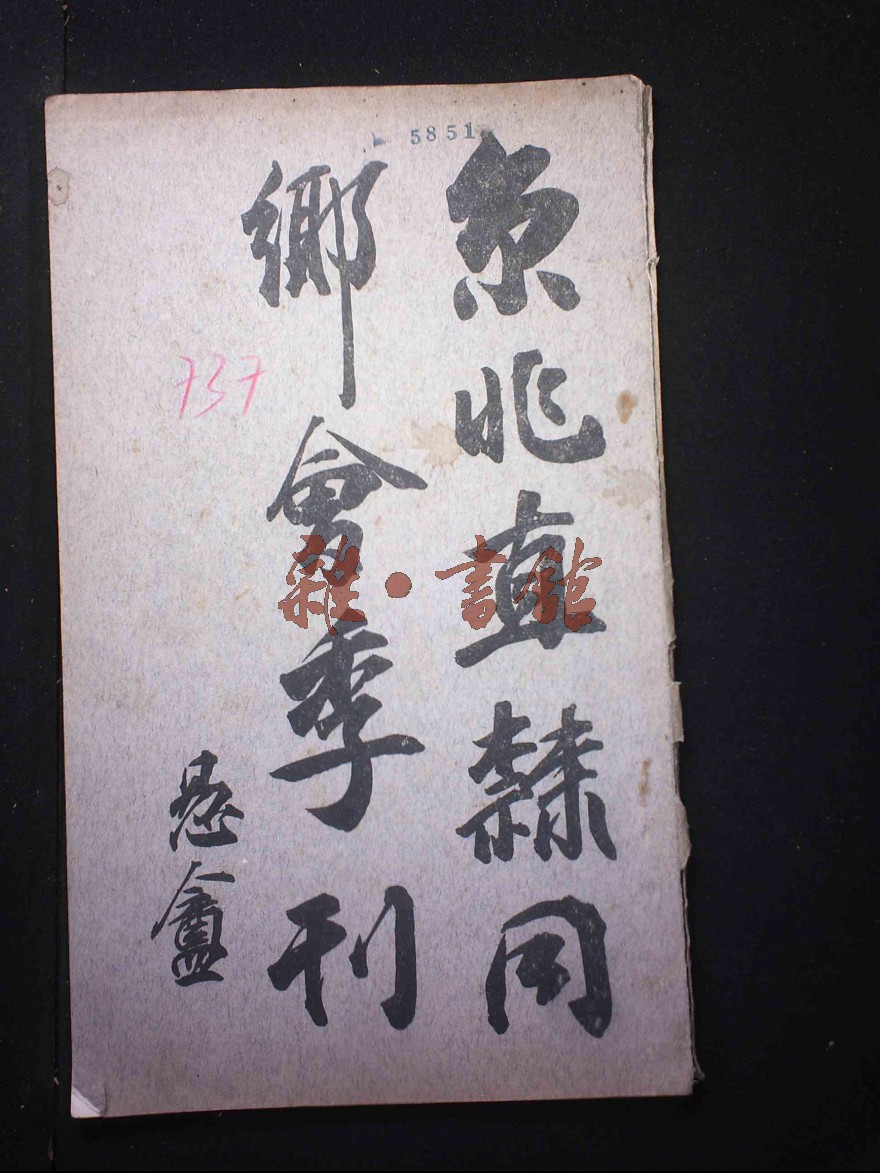 5851
京兆直隸同
鄉會季刊
737
盦
雜·書館